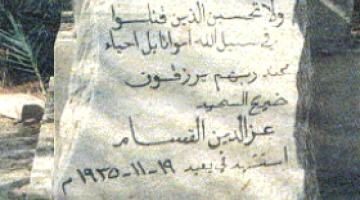 ولا تحسبن الذين قتلوا
في سبيل الله أمواتا بل احياء
عند ربهم يرزقون
ضريح الشهيد
عز الدين القسام
استشهد في يعبد ١٩-١١-١٩٣٥م